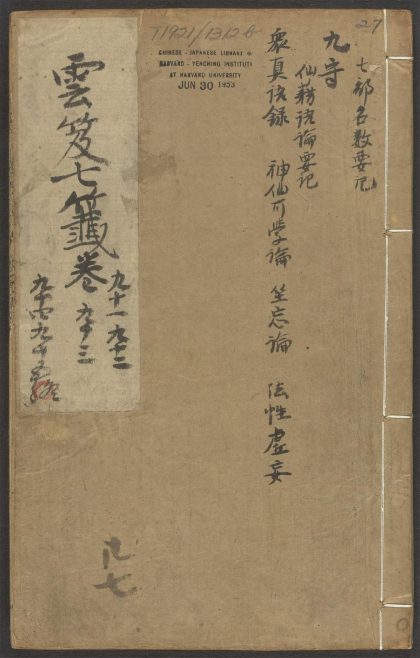 27
T1921/1312b
CHINESE - JAPANESE LIBRARY O
HARVARD - YENCHING INSTITUTE
AT HARVARD UNIVERSITY
JUN 30 1953
七部名数要记
九守
仙籍语論要记
衆真语録 神仙可学論 坐忘論 法性虚妄
雲笈七籤卷
九十一 九十二
九十三
九十四 九十五
廿七